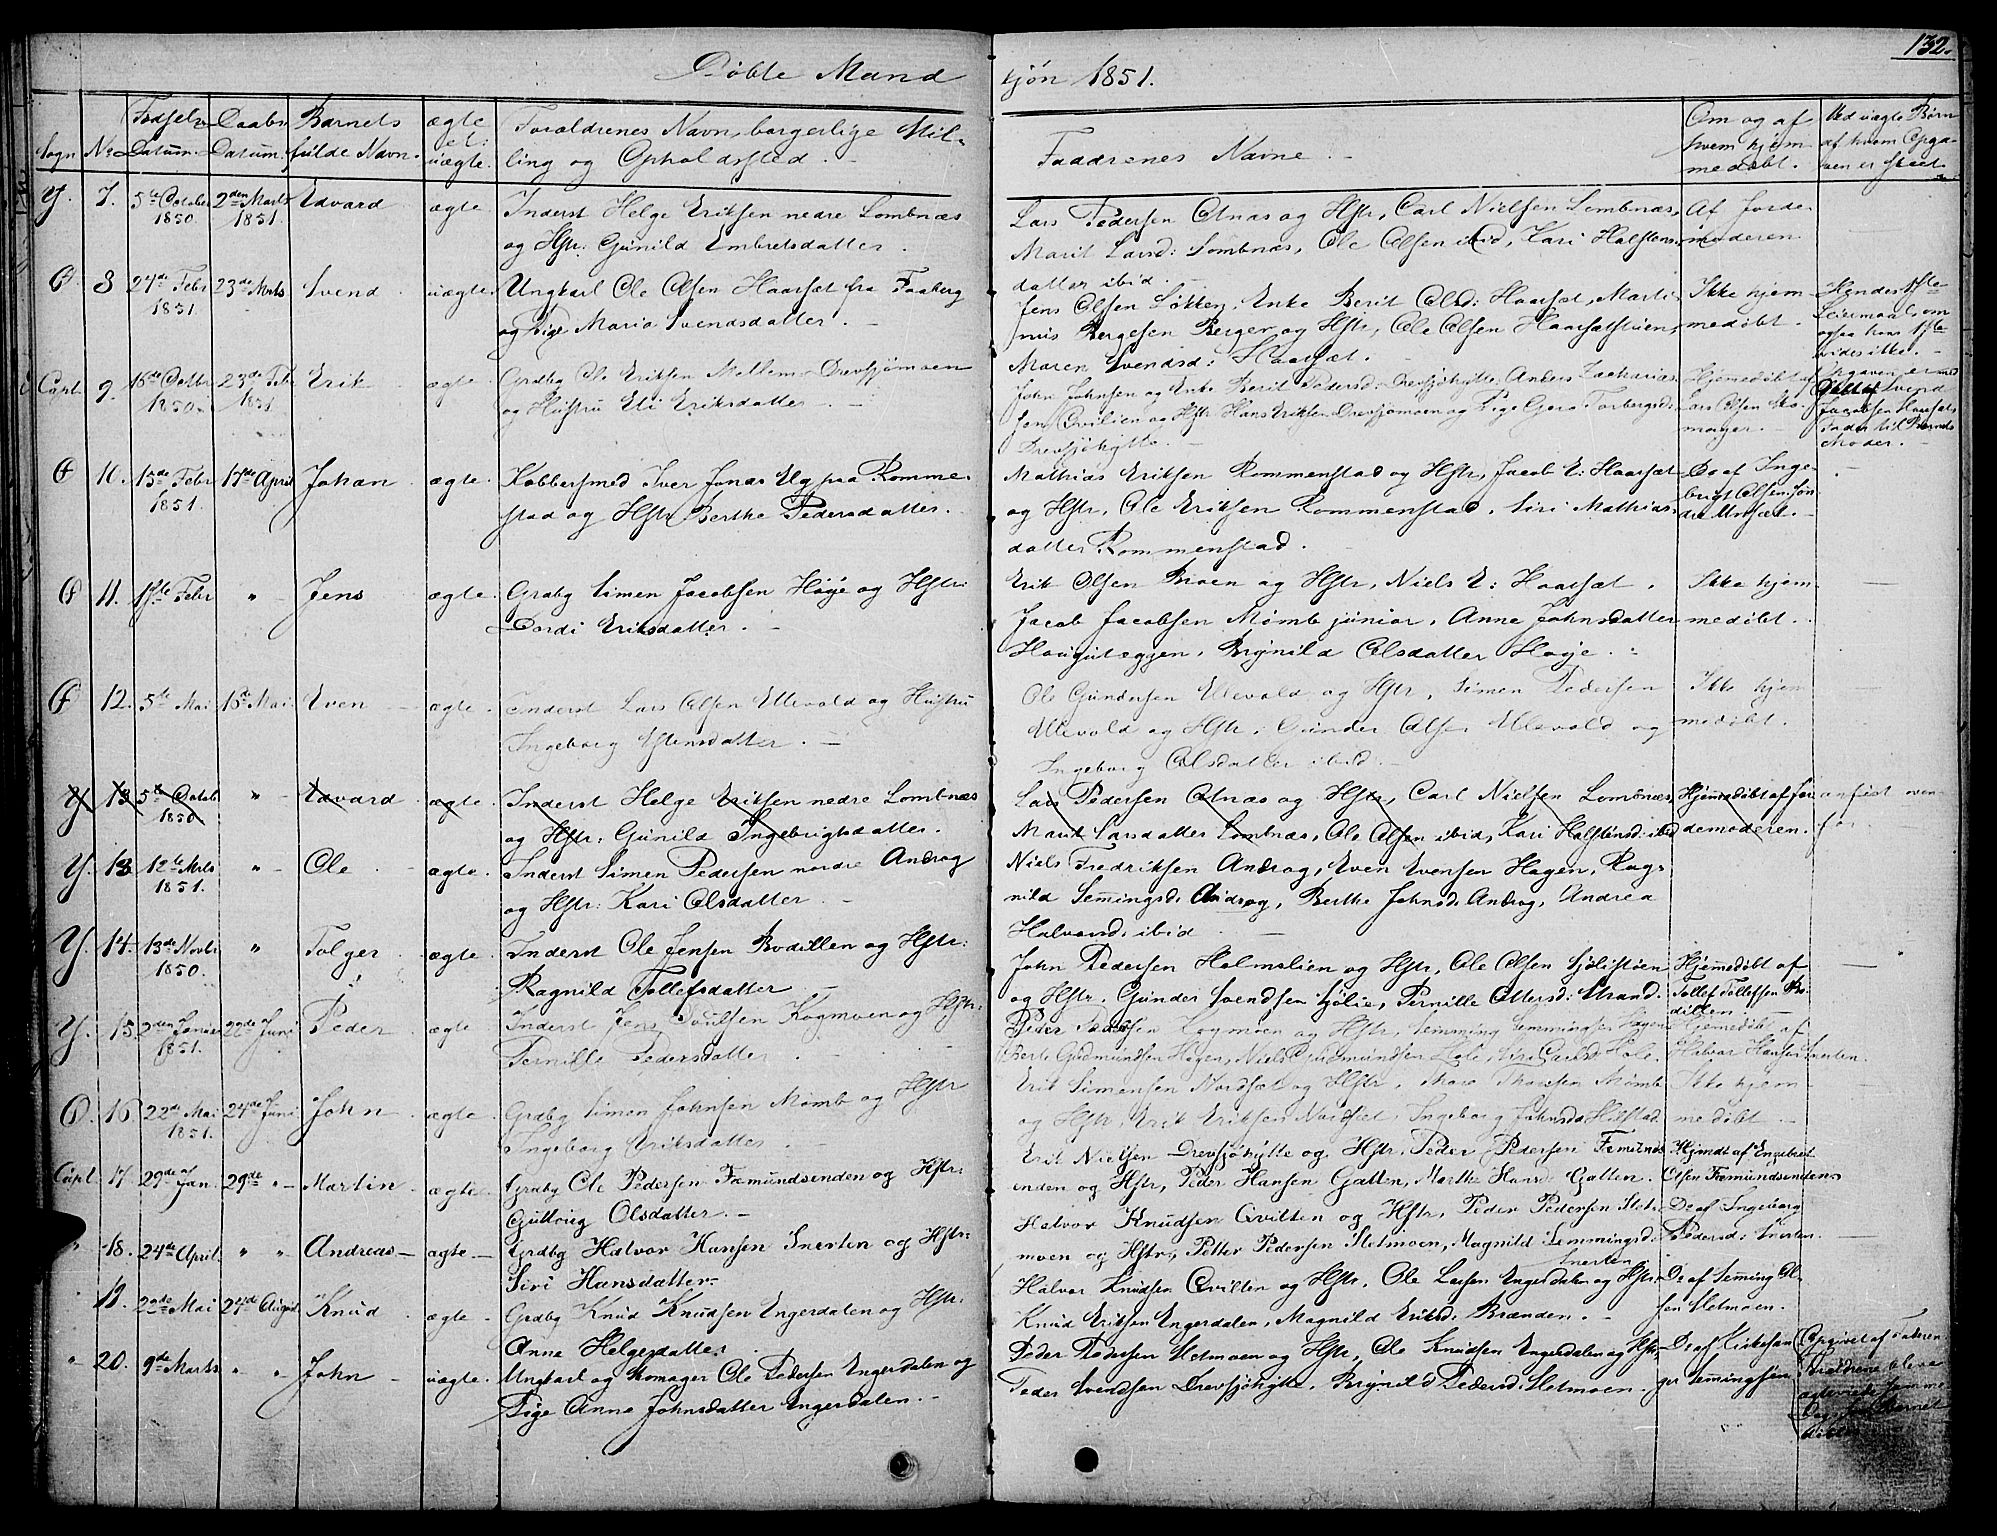 132.
Døbte Mandkjøn 1851.
Sogn No Fødsels Datum. Daabs Datum. Barnets fulde Navn. ægte el: uægte. Forældrenes Navn, borgerlige Stilling og Opholdssted. Faddrenes Navne. Om og af hvem hjemmedøbt. Ved uægte Børn af hvem Opgaven er skeet.
Y. 7. 5te October 1850 2den Marts 1851. Edvard ægte. Inderst Helge Eriksen nedre Lombnæs
og Hstr: Gunild Embretsdatter.
Lars Pedersen Atnæs og Hstr, Carl Nielsen Lombnæs,
Marit Larsd: Lombnæs, Ole Olsen ibid, Kari Halstens-
datter ibid.
Af Jorde-
moderen
Ø 8 24de Febr 1851. 23de Marts Svend uægte. Ungkarl Ole Olsen Haarsæt fra Faaberg
og Pige Maria Svendsdatter.
Jens Olsen Løkken, Enke Berit Olsd: Haarsæt, Marti-
nus Bergesen Berger og Hstr, Ole Olsen Haarsætstuen,
Maren Svendsd: Haarsæt.
Ikke hjem-
medøbt.
Hendes 1ste
Leiermaal, om
ogsaa hans 1ste
vides ikke.
Opgaven er med
Svend
Jacobsen Haarsæt
Fader til Barnets
Moder.
Capt. 9. 16de Octbr 1850 23de Febr 1851 Erik ægte Grdbg Ole Eriksen Mellem-Drevsjømoen
og Hustru Eli Eriksdatter.
John Johnsen og Enke Berit Pedersd: Drevsjøhytte, Anders Zacharias-
sen Qvilten og Hstr Hans Eriksen Drevsjømoen og Pige Goro Torbergsd:
Drevsjøhytte.
Hjemmedøbt af
Lars Olsen Sko-
mager.
Ø 10. 15de Febr 1851. 17de April Johan ægte. Kobbersmed Iver Jonas Eg paa Romme-
stad og Hstr Berthe Pedersdatter.
Mathias Eriksen Rommenstad og Hstr, Jacob E: Haarsæt
og Hstr, Ole Eriksen Rommenstad, Siri Mathias-
datter Rommenstad.
Do af Inge-
brigt Olsen Søn-
dre Unsæt.
Ø 11. Febr " Jens ægte. Grdbg Simen Jacobsen Høye og Hstr:
Dordi Eriksdatter.
Erik Olsen Moen og Hstr, Niels E: Haarsæt,
Jacob Jacobsen Momb junior, Anne Johnsdatter
Haugutæggen, Brynild Olsdatter Høye.
Ikke hjem-
medøbt.
Ø 12. 5te Mai 18de Mai. Even ægte. Inderst Lars Olsen Ullevold og Hustru
Ingeborg Estensdatter.
Ole Gundersen Ullevold og Hstr, Simen Pedersen
Ullevold og Hstr, Gunder Olsen Ullevold og
Ingeborg Olsdatter ibid.
Ikke hjem
medøbt.
Y 13 5te Octob 1850 " Edvard ægte Inderst Helge Eriksen nedre Lombnæs
og Hstr: Gunild Ingebrigtsdatter.
Lars Pedersen Atnæs og Hstr, Carl Nielsen Lombnæs,
Marit Larsdatter Lombnæs, Ole Olsen ibid, Kari Halstensd: ibid
Hjemmedøbt af Jor-
demoderen.
anført oven-
for.
Y. 13 12te Marts 1851. " Ole ægte. Inderst Simen Pedersen nordre Androg
og Hstr: Kari Olsdatter
Niels Fredriksen Androg, Even Evensen Hagen, Rag-
nild Semingsd: Androg, Berthe Johnsd: Androg, Andrea
Halvorsd: ibid
Y. 14. 13de Novbr 1850. " Tolger ægte. Inderst Ole Jensen Bodillen og Hstr:
Ragnild Tollefsdatter
John Pedersen Holmslien og Hstr, Ole Olsen Sjølistuen
og Hstr, Gunder Svendsen Sjølie, Pernille Ottersd: Strand.
Hjemmedøbt af
Tollef Tollefsen Bo-
dillen.
Y. 15. 2den Januar 1851. 22de Juni Peder ægte Inderst Jens Poulsen Kogmoen og Hstr:
Pernille Pedersdatter
Peder Pedersen Kogmoen og Hstr, Semming Semmingsen Hagen
Berte Gudmundsen Hagen, Niels Gudmundsen Hole, Siri Larsd: Hole.
Hjemmedøbt af
Halvor Hansen Snerten.
Ø. 16 22de Mai 1851. 24de Juni John ægte. Grdbg Simon Johnsen Momb og Hstr
Ingeborg Eriksdatter
Erik Simensen Nordsæt og Hstr, Thore Thoresen Momb
og Hstr, Erik Eriksen Nordsæt, Ingeborg Johnsd: Hilstad
Ikke hjem
medøbt
Capt 17. 29de Jan. 29de " Martin ægte. Grdbg Ole Pedersen Fæmundsenden og Hstr:
Guttorig Olsdatter.
Erik Nielsen Drevsjøhytte og Hstr, Peder Pedersen Femunds-
enden og Hstr, Peder Hansen Galten, Marthe Hansd: Galten.
Hjmdt af Engebret
Olsen Fæmundsenden
" 18. 24de April. " " Andreas ægte Grdbg Halvor Hansen Snerten og Hstr:
Siri Hansdatter
Halvor Knudsen Qvilten og Hstr, Peder Pedersen Slet-
moen og Hstr, Petter Pedersen Sletmoen, Magnild Semmingsd:
Snerten
Do af Ingeborg
Pedersd: Snerten.
19. 22de Mai 24de August Knud ægte Grdbg Knud Knudsen Engerdalen og Hstr:
Anne Helgesdatter
Halvor Knudsen Qvilten og Hstr, Ole Larsen Engerdalen og Hstr
Knud Eriksen Engerdalen, Magnild Eriksd: Brænden.
Do af Semming Ol-
sen Sletmoen.
" 20. 9de Marts " " John uægte. Ungkarl og Skomager Ole Pedersen Engerdalen og
Pige Anne Johnsdatter Engerdalen.
Peder Pedersen Sletmoen og Hstr, Ole Knudsen Engerdalen og Hstr,
Peder Svendsen Drevsjøhytte, Brynild Pedersd: Sletmoen.
Do af Kirkesan-
ger Semmingsen
Opgivet af Fadren.
Forældrene bleve
ægteviede samme
Dag som Barnet
døbtes